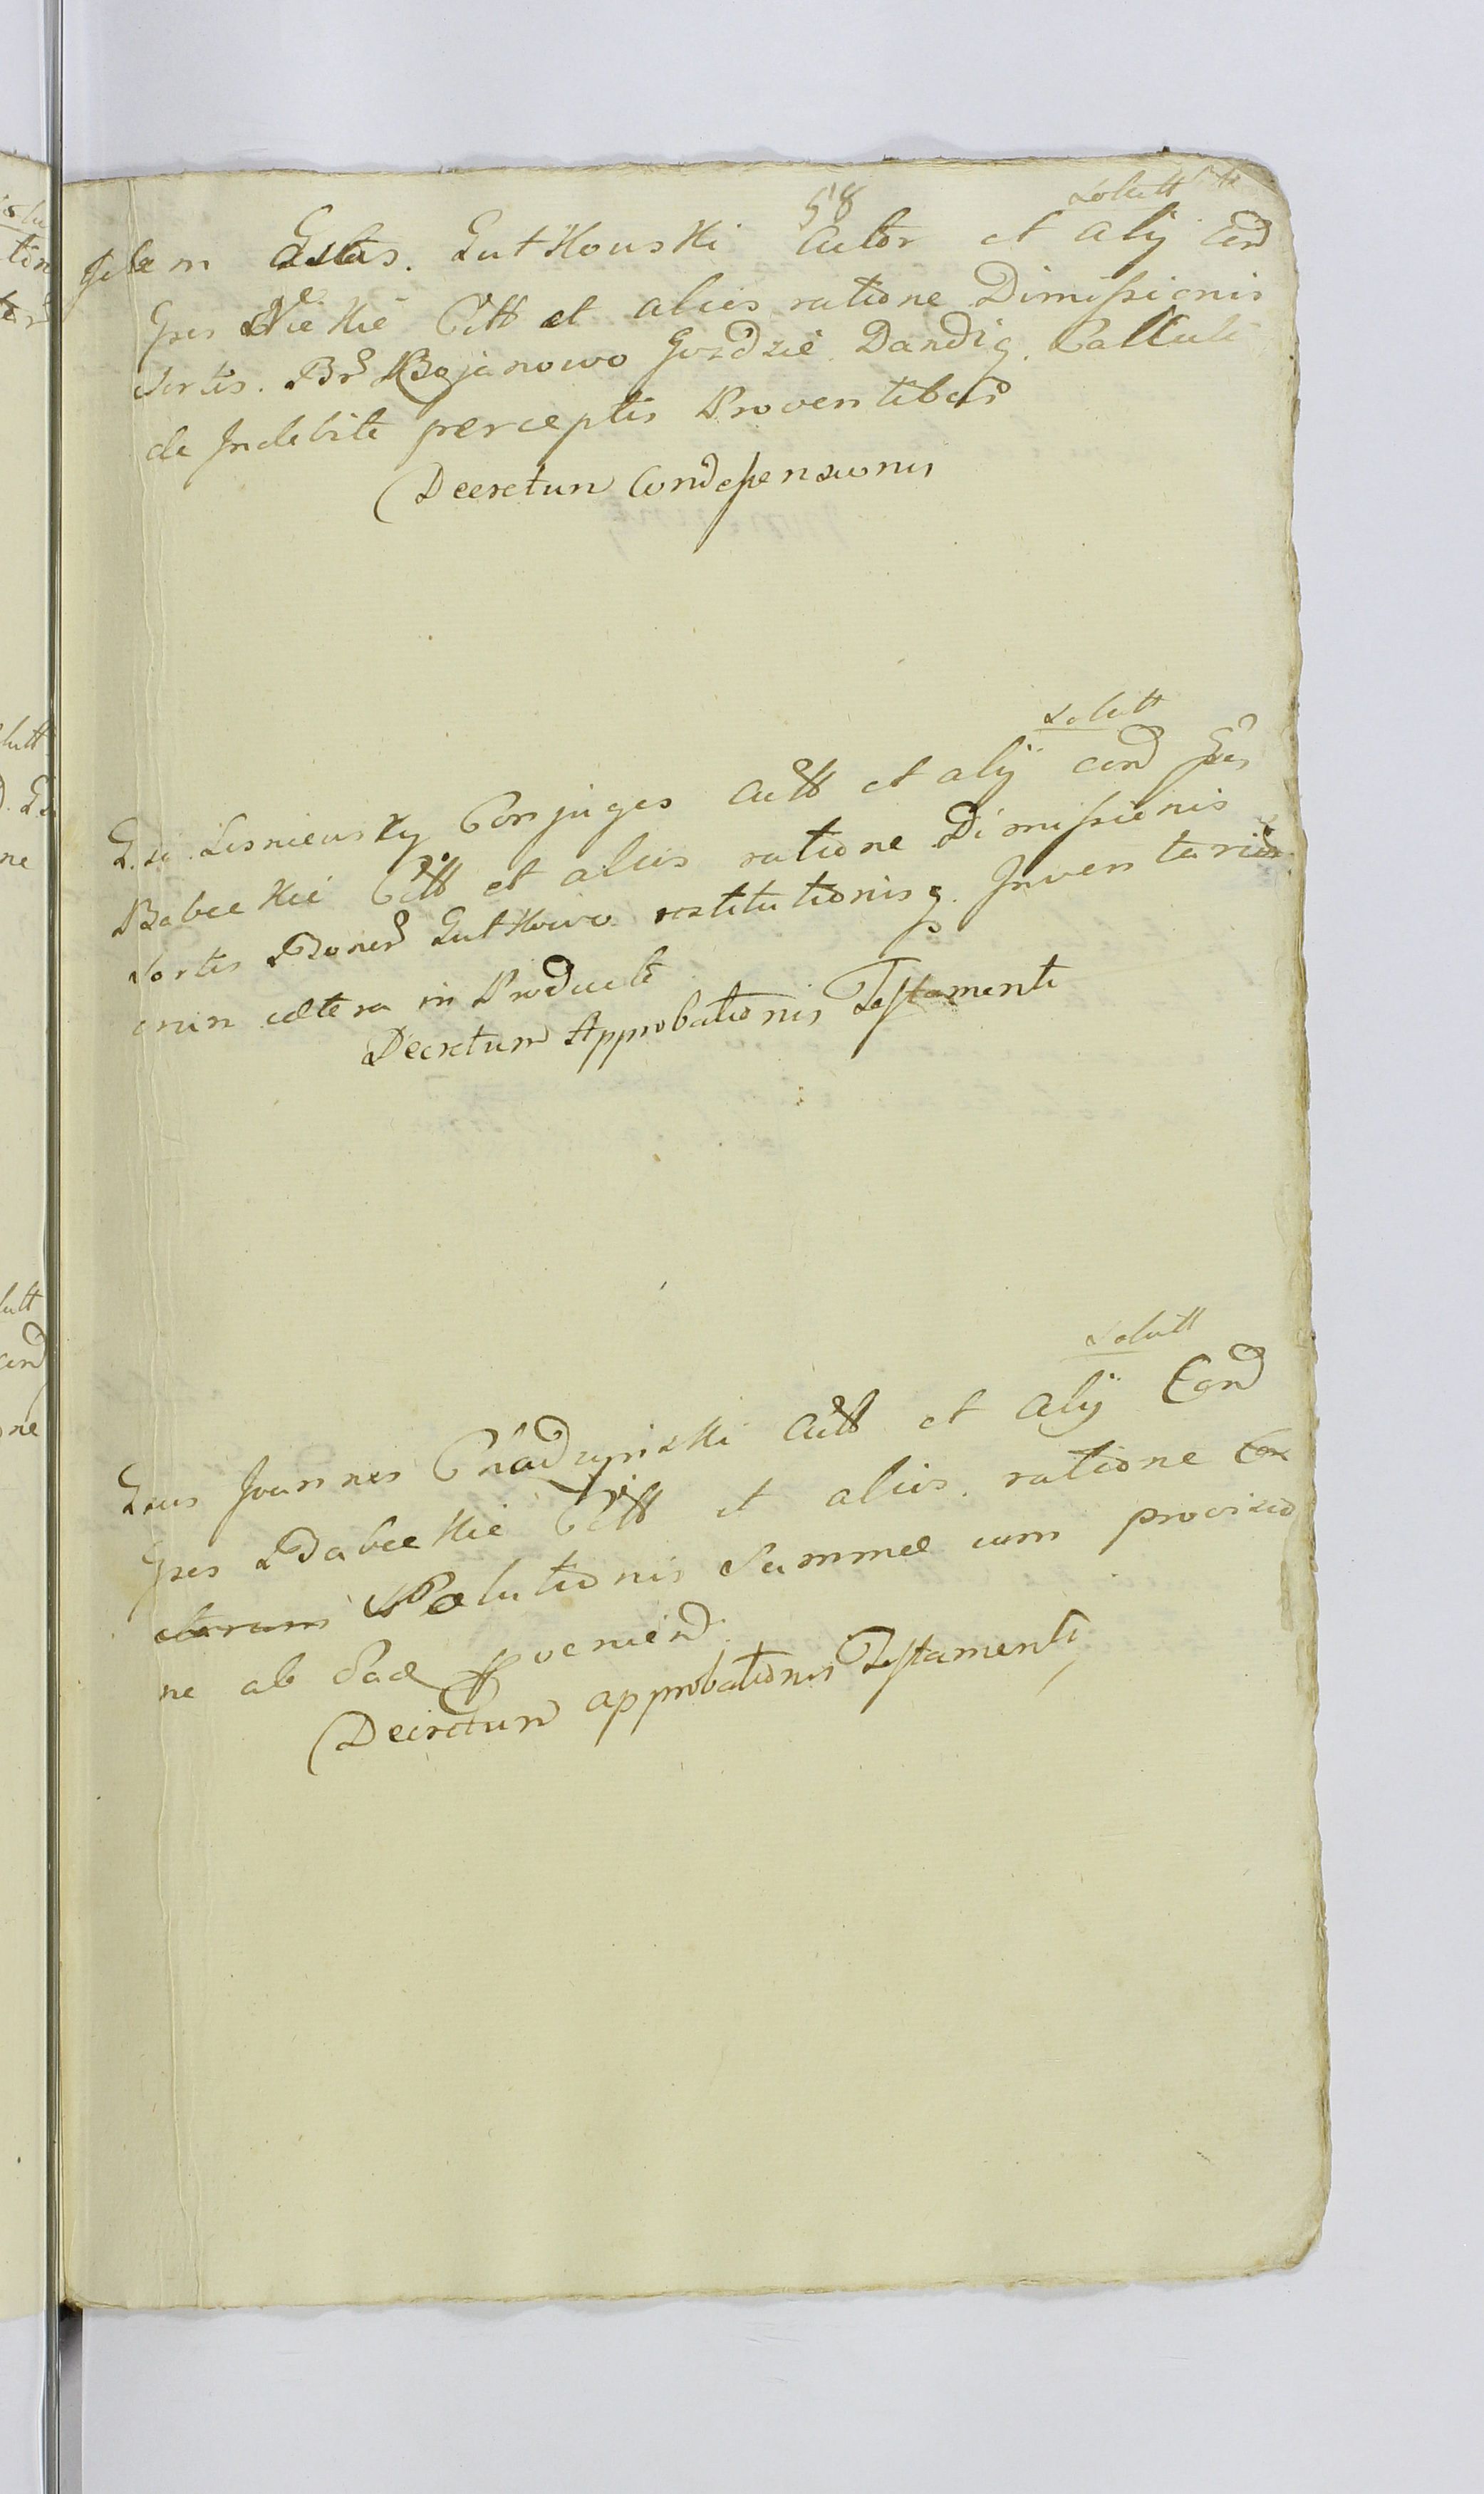 58
Solutt
Idem Gsus. Gutkouski Actor et alij con
Gses Niekie Citt et alios ratione Dimissionis
Sortis. Br Bojanowo Gozdzie Dandiq. Calculi
de Indebite perceptis Proventibus
Decretum Condespensionis
Solutt
G.si Lisniewsky Conjuges Actt et alij con Gses
Babeckie Citt et alios ratione Dimissionis
Sortis Boner Gutkowo restitutionisq. Inventario
cum cetera in Producti
Decretum Approbationis Testamenti
Solutt
Gsus Joannes Chadzynski Actt et alij Con
Gses Babeckie Citt et alios. ratione
Solutionis Summae cum provisio
ne ab Ead provenien
Decretum approbationis Testamenti